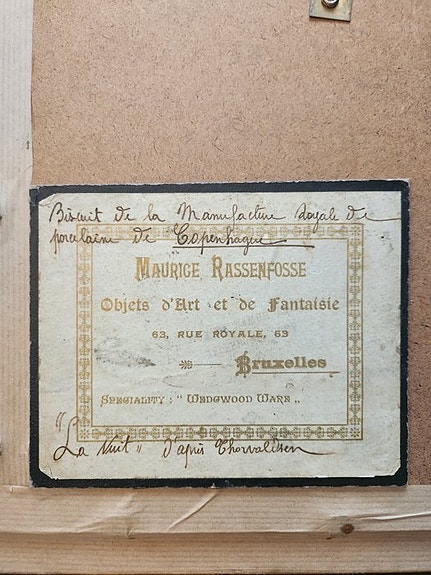 Biscuit de la Manufacture Royale de
porcelaine de Copenhague
MAURICE RASSENFOSSE
Objets d'Art et de Fantaisie
63, RUE ROYALE, 63
Bruxelles
SPECIALITY: "WEDGWOOD WARE„
"La Nuit„ d'après Thorvaldsen